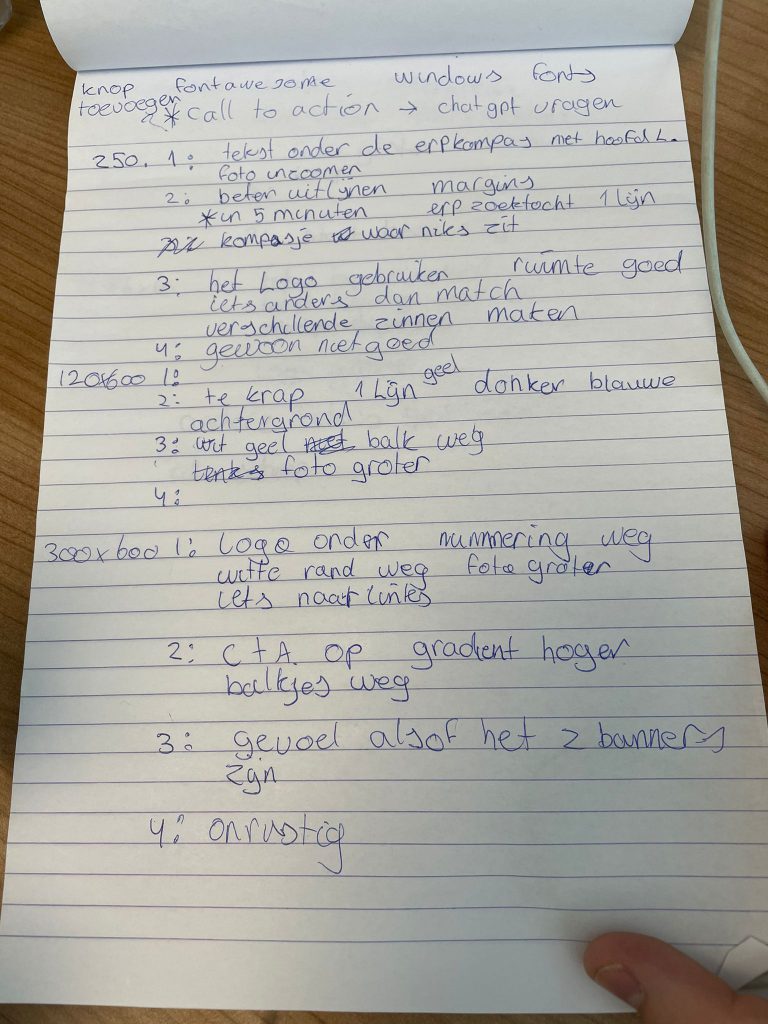 knop fontawesome windows fonts
toevoegen * call to action → chatgpt vragen
250. 1: tekst onder de erpkompas met hoofd L.
foto inzoomen
2: beter uitlijnen margins
* in 5 minuten erp zoektocht 1 lijn
kompasje waar niks zit
3: het Logo gebruiken ruimte goed
iets anders dan match
verschillende zinnen maken
4: gewoon niet goed
120x600 1:
2: te krap 1 Lijn geel donker blauwe
achtergrond
3: wit geel balk weg
foto groter
4:
300x600 1: Logo onder nummering weg
witte rand weg foto groter
iets naar links
2: C t A. op gradient hoger
balkjes weg
3: gevoel alsof het 2 banners
zijn
4: onrustig